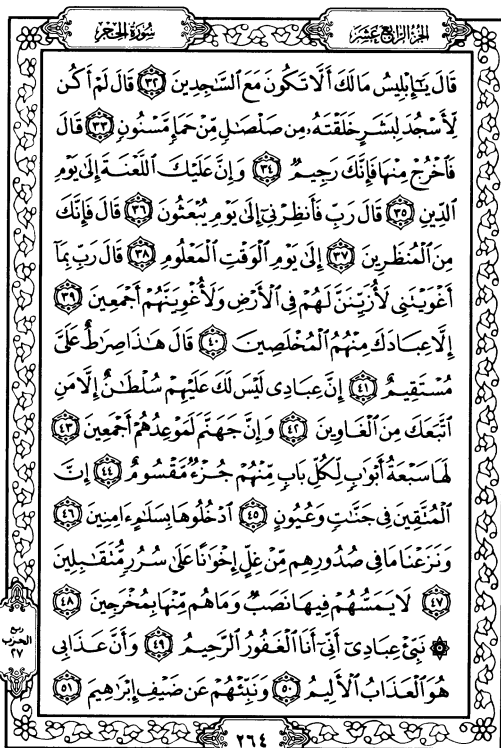 سُورَةُ الحِجْرِ
الجزء الرابع عشر
قَالَ يَٰٓإِبْلِيسُ مَا لَكَ أَلَّا تَكُونَ مَعَ ٱلسَّٰجِدِينَ ٣٢ قَالَ لَمْ أَكُن
لِّأَسْجُدَ لِبَشَرٍ خَلَقْتَهُۥ مِن صَلْصَٰلٍ مِّنْ حَمَإٍ مَّسْنُونٍ ٣٣ قَالَ
فَٱخْرُجْ مِنْهَا فَإِنَّكَ رَجِيمٌ ٣٤ وَإِنَّ عَلَيْكَ ٱللَّعْنَةَ إِلَىٰ يَوْمِ
ٱلدِّينِ ٣٥ قَالَ رَبِّ فَأَنظِرْنِىٓ إِلَىٰ يَوْمِ يُبْعَثُونَ ٣٦ قَالَ فَإِنَّكَ
مِنَ ٱلْمُنظَرِينَ ٣٧ إِلَىٰ يَوْمِ ٱلْوَقْتِ ٱلْمَعْلُومِ ٣٨ قَالَ رَبِّ بِمَآ
أَغْوَيْتَنِى لَأُزَيِّنَنَّ لَهُمْ فِى ٱلْأَرْضِ وَلَأُغْوِيَنَّهُمْ أَجْمَعِينَ ٣٩
إِلَّا عِبَادَكَ مِنْهُمُ ٱلْمُخْلَصِينَ ٤٠ قَالَ هَٰذَا صِرَٰطٌ عَلَىَّ
مُسْتَقِيمٌ ٤١ إِنَّ عِبَادِى لَيْسَ لَكَ عَلَيْهِمْ سُلْطَٰنٌ إِلَّا مَنِ
ٱتَّبَعَكَ مِنَ ٱلْغَاوِينَ ٤٢ وَإِنَّ جَهَنَّمَ لَمَوْعِدُهُمْ أَجْمَعِينَ ٤٣
لَهَا سَبْعَةُ أَبْوَٰبٍ لِّكُلِّ بَابٍ مِّنْهُمْ جُزْءٌ مَّقْسُومٌ ٤٤ إِنَّ
ٱلْمُتَّقِينَ فِى جَنَّٰتٍ وَعُيُونٍ ٤٥ ٱدْخُلُوهَا بِسَلَٰمٍ ءَامِنِينَ ٤٦
وَنَزَعْنَا مَا فِى صُدُورِهِم مِّنْ غِلٍّ إِخْوَٰنًا عَلَىٰ سُرُرٍ مُّتَقَٰبِلِينَ
٤٧ لَا يَمَسُّهُمْ فِيهَا نَصَبٌ وَمَا هُم مِّنْهَا بِمُخْرَجِينَ ٤٨
۞ نَبِّئْ عِبَادِىٓ أَنِّىٓ أَنَا ٱلْغَفُورُ ٱلرَّحِيمُ ٤٩ وَأَنَّ عَذَابِى
هُوَ ٱلْعَذَابُ ٱلْأَلِيمُ ٥٠ وَنَبِّئْهُمْ عَن ضَيْفِ إِبْرَٰهِيمَ ٥١
ربع
الحزب
٢٧
٢٦٤